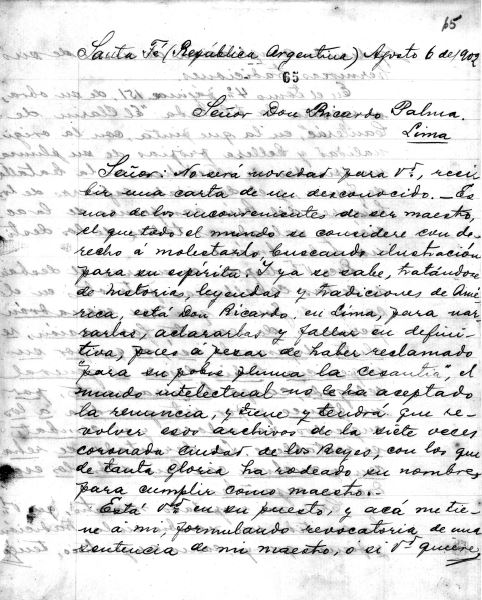 65
Santa Fé (República Argentina) Agosto 6 de 1902
65
Señor Don Ricardo Palma.
Lima
Señor: No será novedad para Vd, reci
bir una carta de un desconocido. — Es
uno de los inconvenientes de ser maestro,
el que todo el mundo se considere con de-
recho á molestarlo, buscando ilustración
para su espíritu. Y ya se sabe, tratándose
de historias, leyendas y tradiciones de Amé
rica, está Don Ricardo, en Lima, para nar-
rarlas, aclararlas y fallar en defini-
tiva, pues á pesar de haber reclamado
"para su pobre pluma la cesantía", el
mundo intelectual no le ha aceptado
la renuncia, y tiene y tendrá que re-
volver esos archivos de la siete veces
coronada ciudad de los Reyes, con los que
de tanta gloria ha rodeado su nombre,
para cumplir como maestro.-
Está Vd en su puesto, y acá me tie-
ne á mi, formulando revocatoria de una
sentencia de mi maestro, o si Vd quiere,